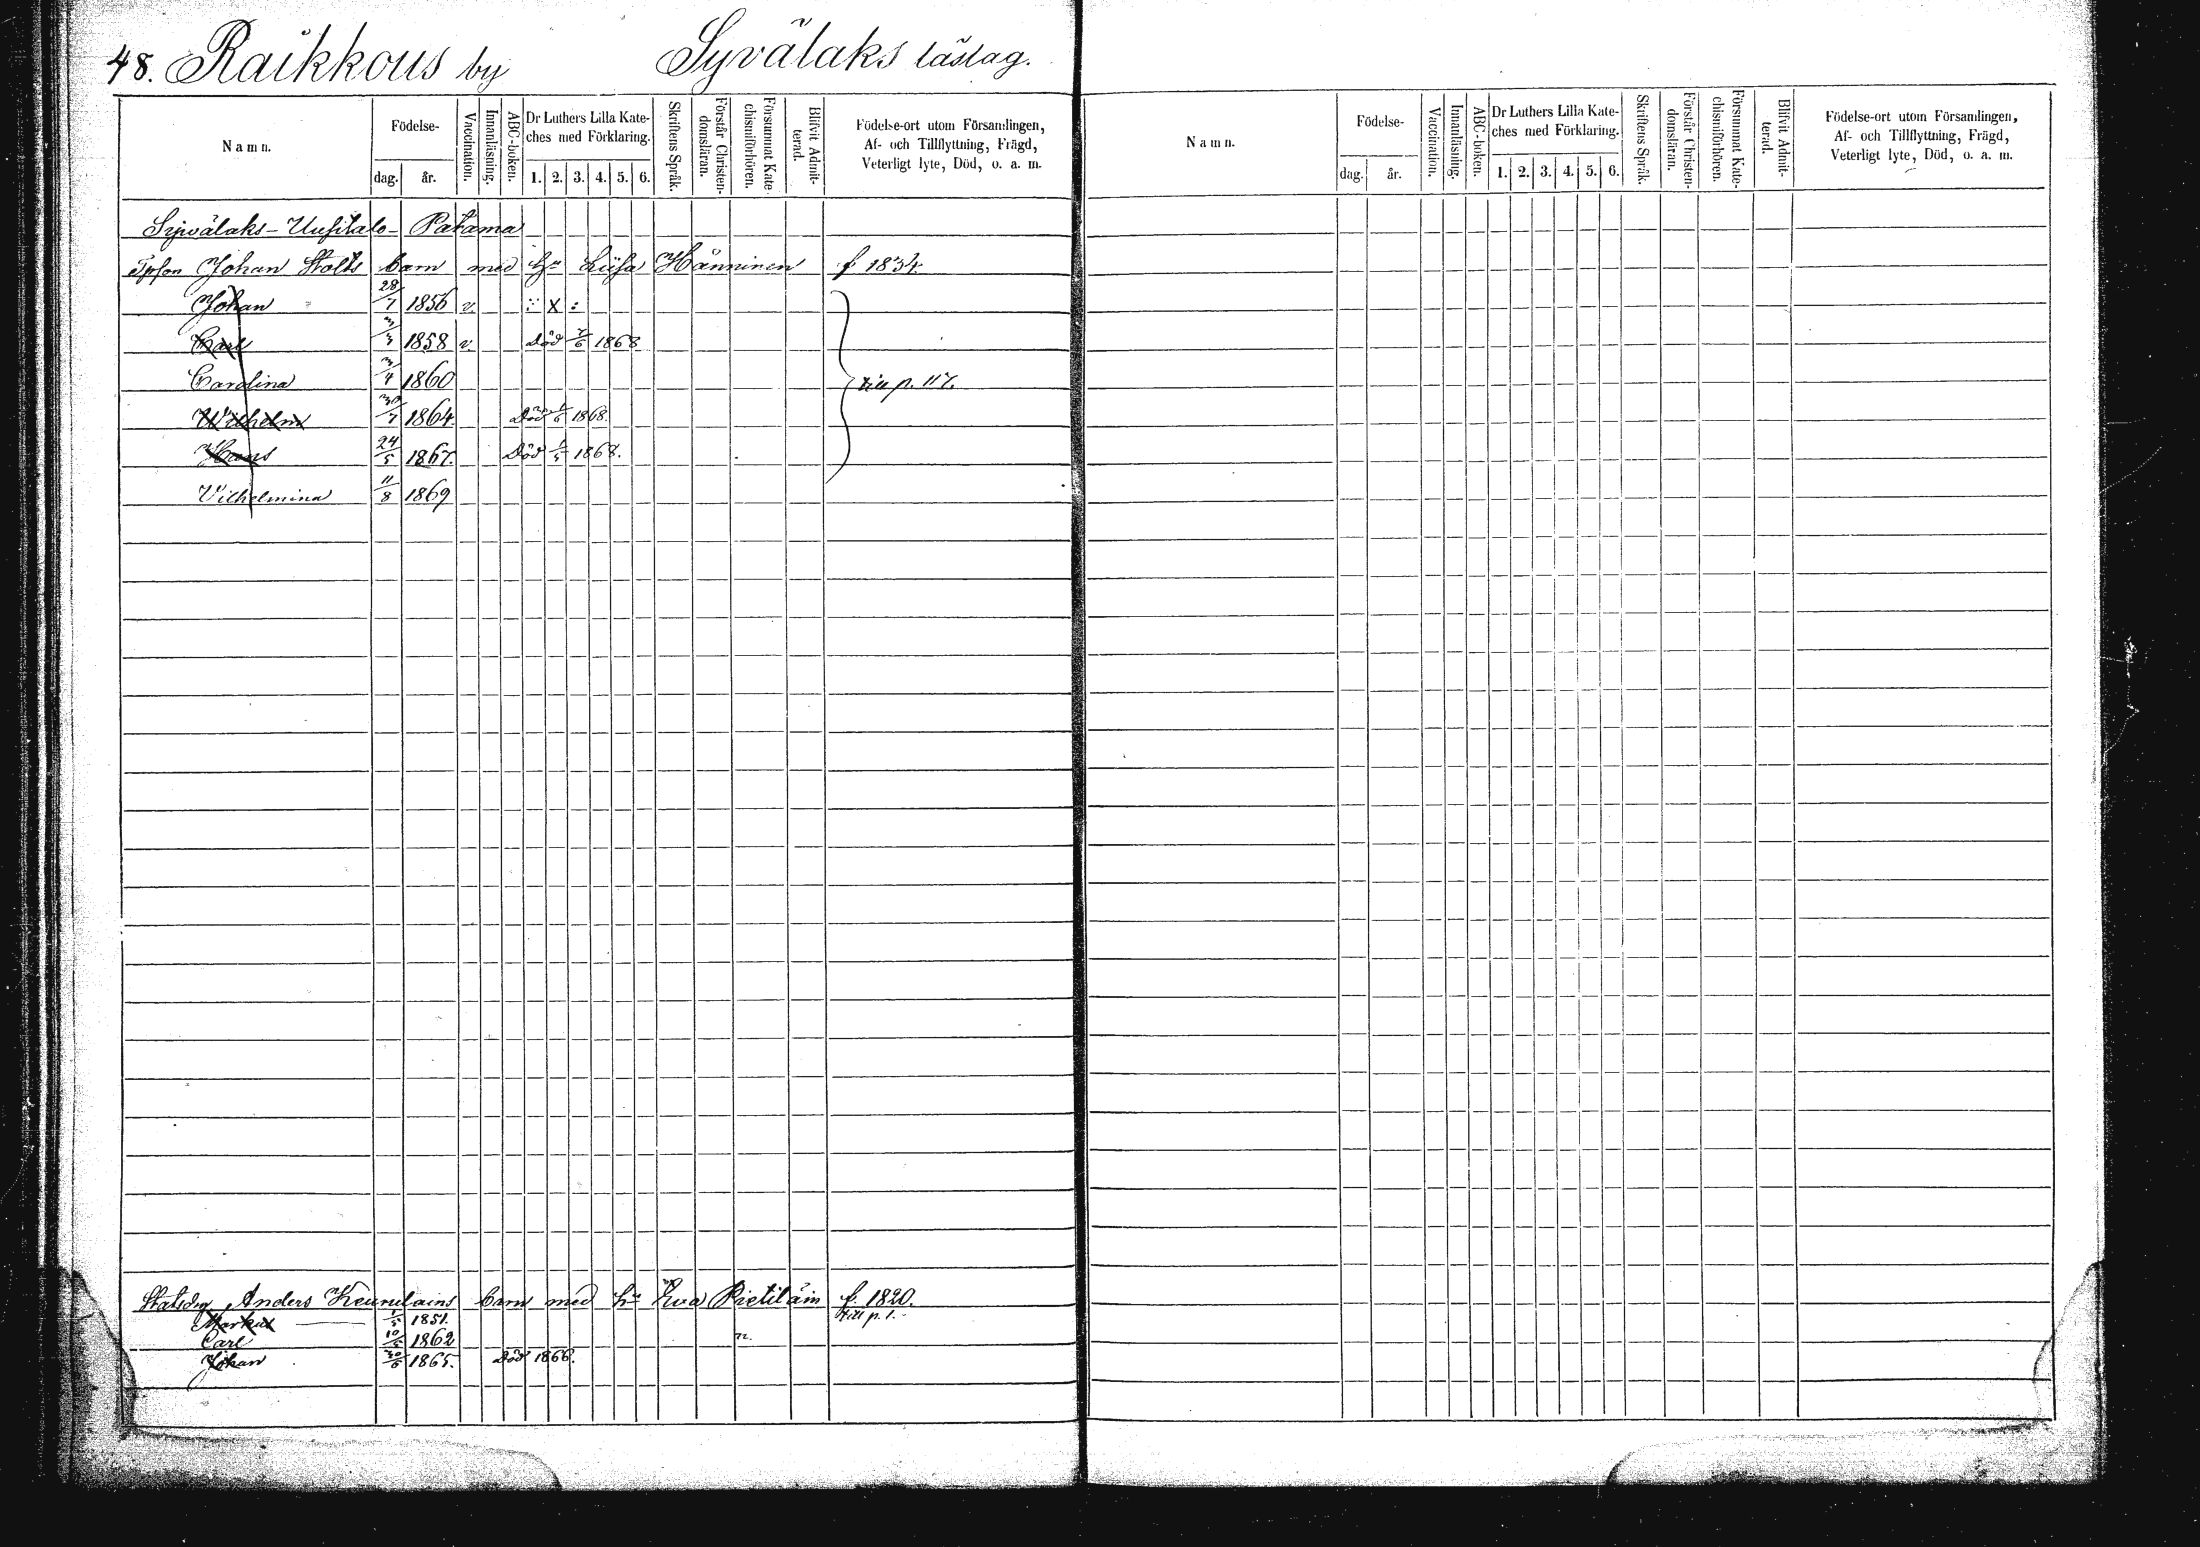 48. Raikkous by Syvälaks läslag.
Namn. Födelse- dag. år. Vaccination. Innanläsning. ABC-boken. Dr Luthers Lilla Kateches med Förklaring. 1. 2. 3. 4. 5. 6. Skriftens Språk. Förstår Christendomsläran. Försummat Katechismiförhören. Blifvit Admitterad. Födelse-ort utom Församlingen, Af- och Tillflyttning, Frägd, Veterligt lyte, Död, o. a. m.
Syvälaks-Uusitalo-Patama
Johan Stolts barn med Hu Liisa Hänninen f 1834
Johan 28/7 1856 v. ∵ X :
Carl 1858 v. Död 1868
Carolina 3/4 1860 till p. 117.
Wilhelm 30/7 1864. Död 1868.
Hans 24/5 1867. Död 1868.
Vilhelmina 11/8 1869
Anders Keurulains barn med Eva Pietiläin f. 1820.
Markus 1851. till p. 1.
Carl 1862 n.
Johan 1865. Död 1866.
Namn. Födelse- dag. år. Vaccination. Innanläsning. ABC-boken. Dr Luthers Lilla Kateches med Förklaring. 1. 2. 3. 4. 5. 6. Skriftens Språk. Förstår Christendomsläran. Försummat Katechismiförhören. Blifvit Admitterad. Födelse-ort utom Församlingen, Af- och Tillflyttning, Frägd, Veterligt lyte, Död, o. a. m.